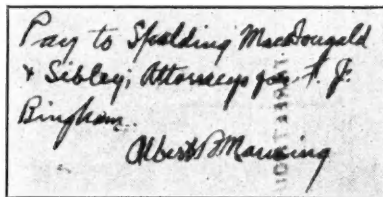 Pay to Spalding MacDougald
& Sibley; Attorneys for T. J.
Bingham.
Albert Manning